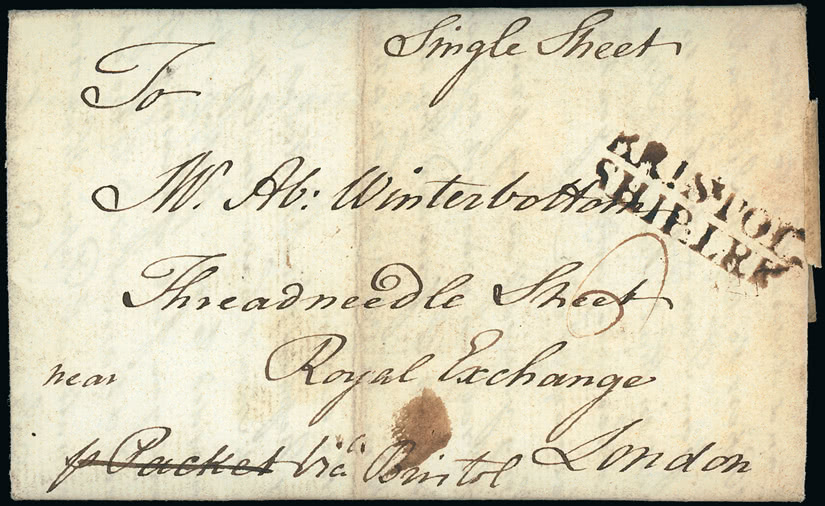 Single Sheet
To
BRISTOL
SHIP LRE
Mr. Ab: Winterbottom
Threadneedle Street
near Royal Exchange
p Packet Via Bristol London